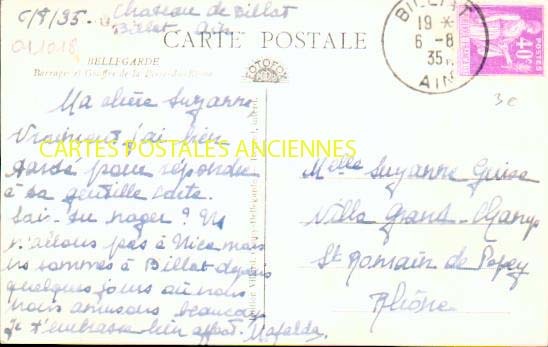 6/8/35
Chateau de Billat
Billat Ain
011018
CARTE POSTALE
BELLEGARDE
Barrages et Gouffre de la Perte du Rhône
FOTOFOX
BILLIAT
19 *
6 - 8
35
AIN
POSTES
40c
3e
Ma chère Suzanne,
Vraiment j'ai bien
tardé pour répondre
à ta gentille carte.
Sais-tu nager? Ns
n'allons pas à Nice mais
ns sommes à Billat depuis
quelques jours où nous
nous amusons beaucoup
je t'embrasse bien affect. Mafalda.
CARTES POSTALES ANCIENNES
Melle Suzanne
Villa Grand-Champ
St Romain de Popey
Rhône